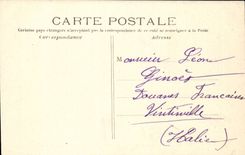 CARTE POSTALE
Certains pays étrangers n'acceptant pas la correspondance de ce coté se renseigner à la Poste
Correspondance Adresse
Monsieur Léon
Ginoès
Douanes Françaises
Vintimille
(Italie)